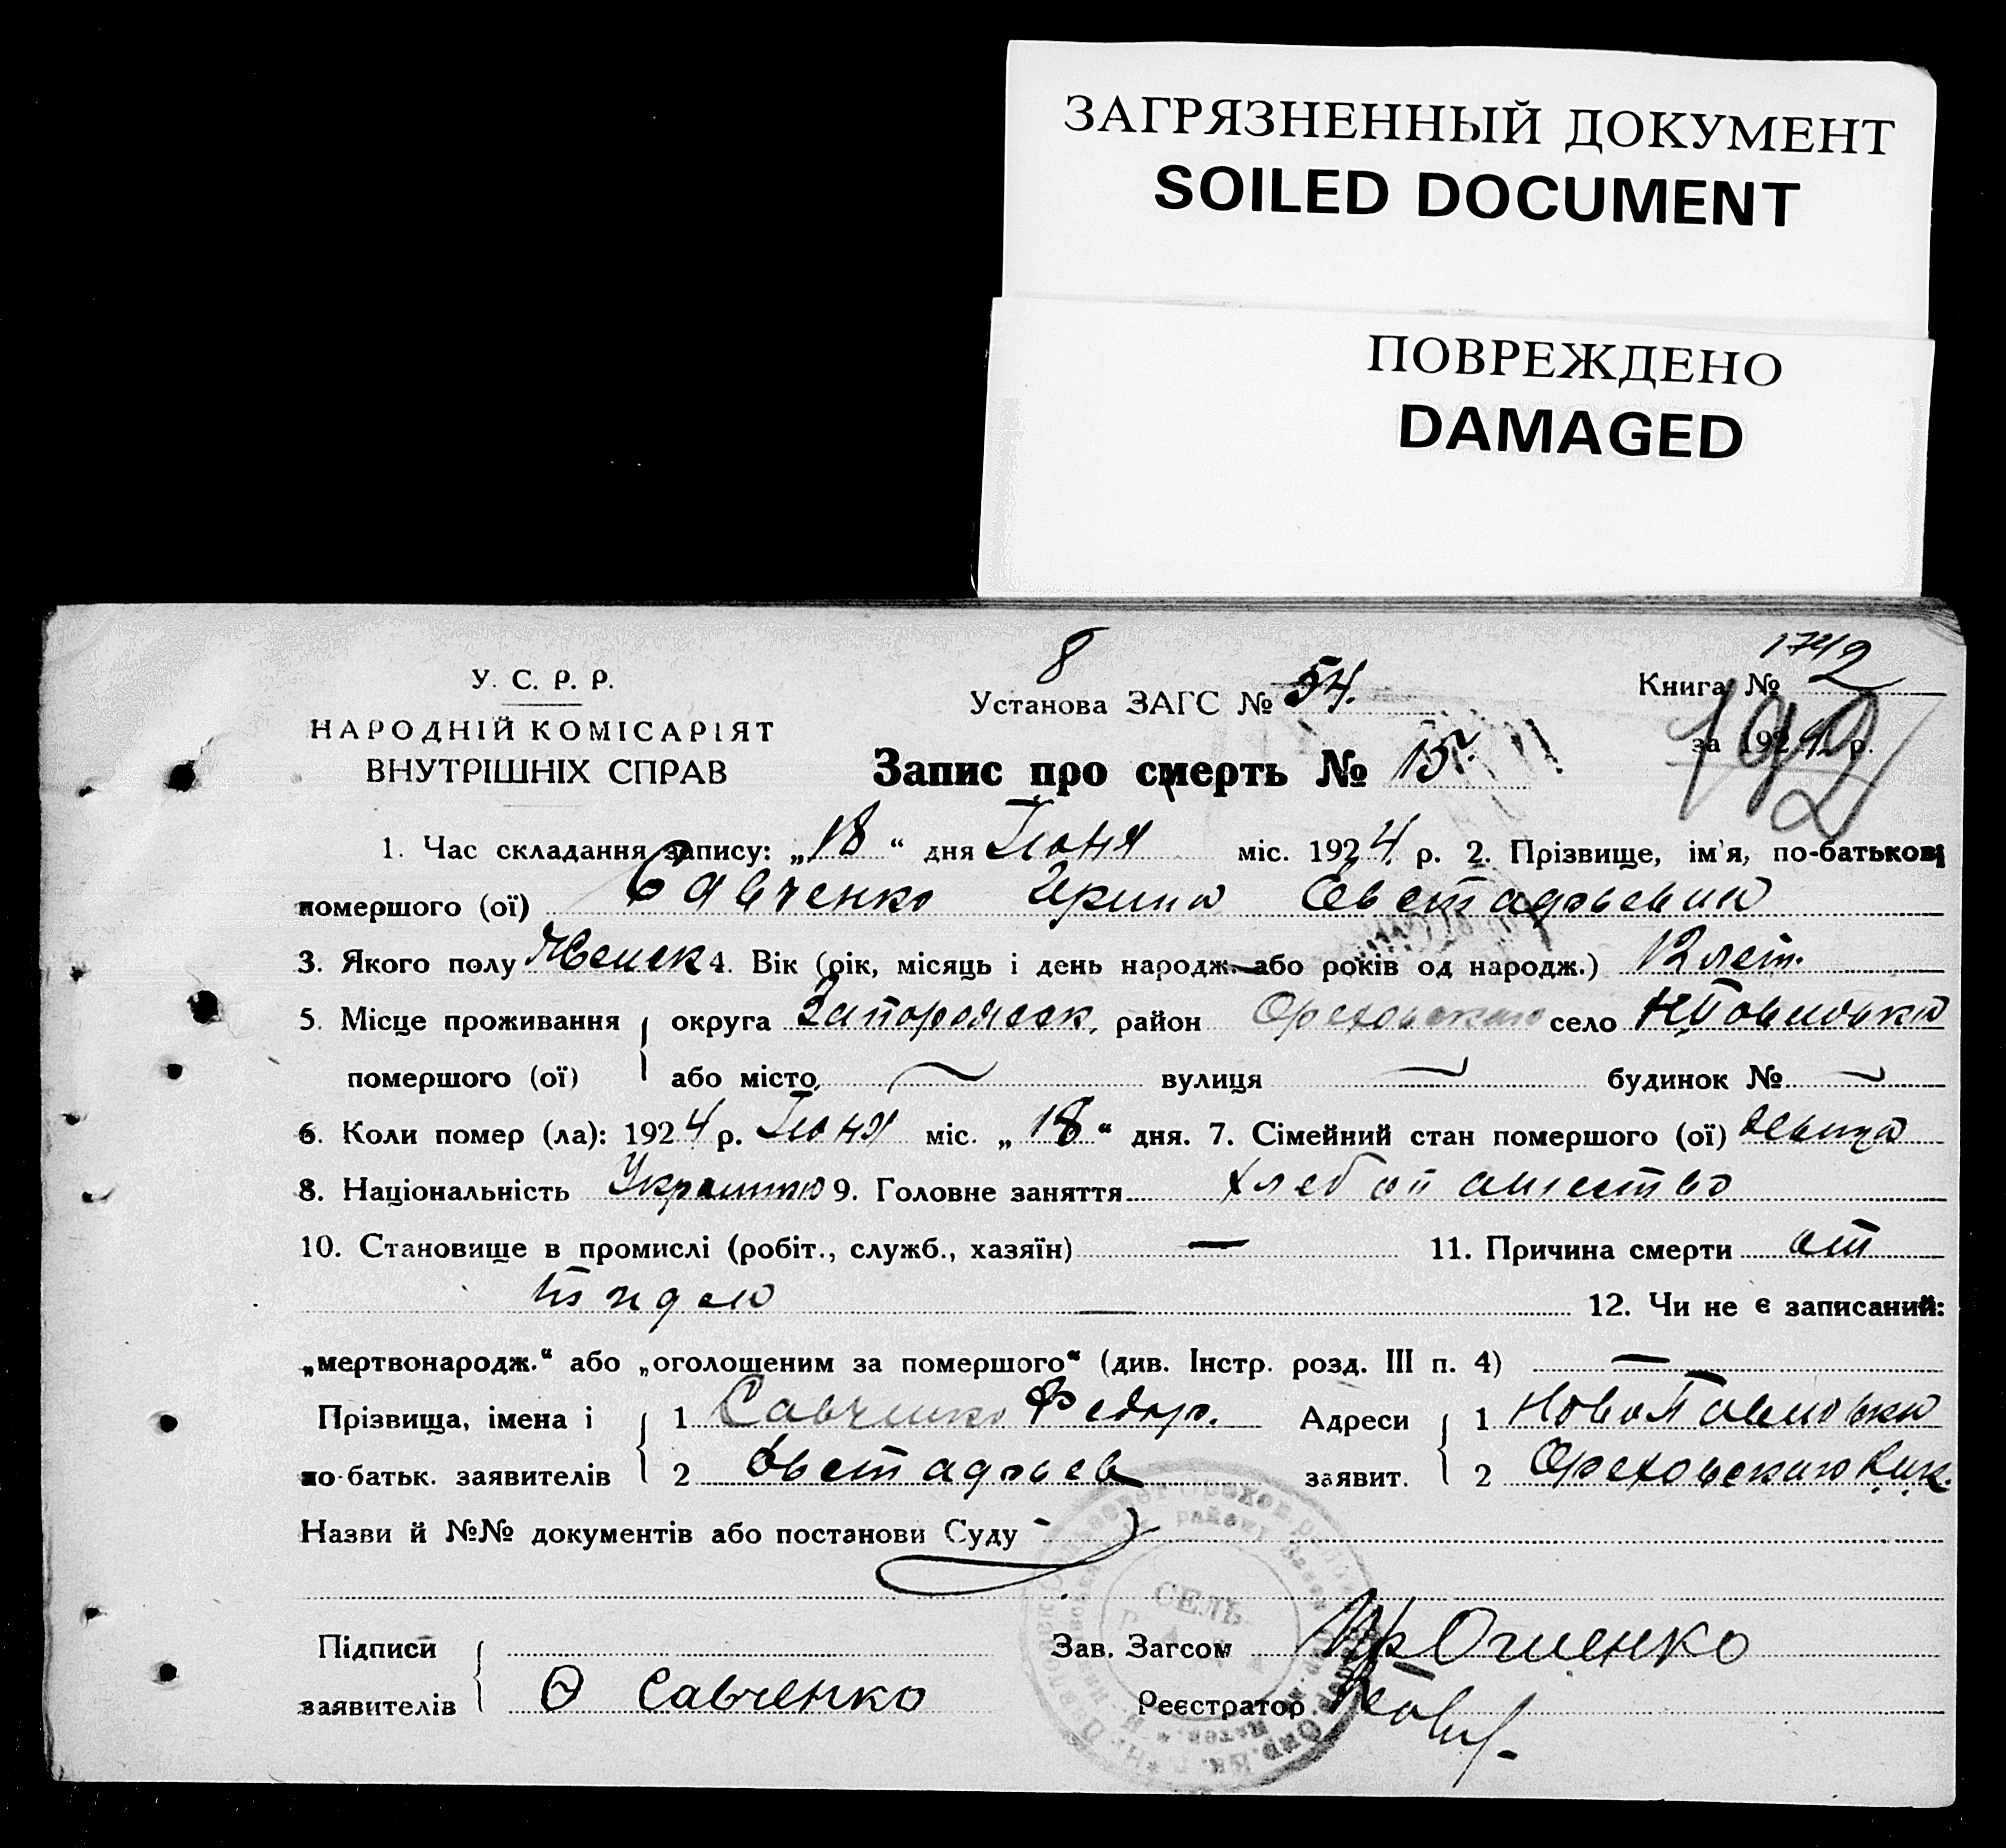 ЗАГРЯЗНЕННЫЙ ДОКУМЕНТ
SOILED DOCUMENT
ПОВРЕЖДЕНО
DAMAGED
У. С. Р. Р.
НАРОДНІЙ КОМІСАРІЯТ
ВНУТРІШНІХ СПРАВ
8
Установа ЗАГС № 54.
Запис про смерть № 15
1742
Книга №
за 1924 р.
192
1. Час складання запису: „18“ дня Іюня міс. 1924 р. 2. Прізвище, ім'я, по-батькові
помершого (ої) Савченко Ирина Евстафьевна
3. Якого полу Женск 4. Вік (рік, місяць і день народж. або років од народж.) 12 лет.
5. Місце проживання округа Запорожск. район Ореховского село Н.Павловка
помершого (ої) або місто ~ вулиця ~ будинок № ~
6. Коли помер (ла): 1924 р. Іюня міс. „18“ дня. 7. Сімейний стан помершого (ої) девица
8. Національність 9. Головне заняття хлебопашество
10. Становище в промислі (робіт., служб., хазяїн) — 11. Причина смерти от
— 12. Чи не є записаний:
„мертвонародж.“ або „оголошеним за помершого“ (див. Інстр. розд. III п. 4) —
Прізвища, імена і 1 Савченко Федор. Адреси 1 НовоПавловка
по-батьк. заявителів 2 Евстафьев заявит. 2 Ореховского
Назви й №№ документів або постанови Суду -
СЕЛЬ
Підписи Зав. Загсом
заявителів Ѳ Савченко Реєстратор